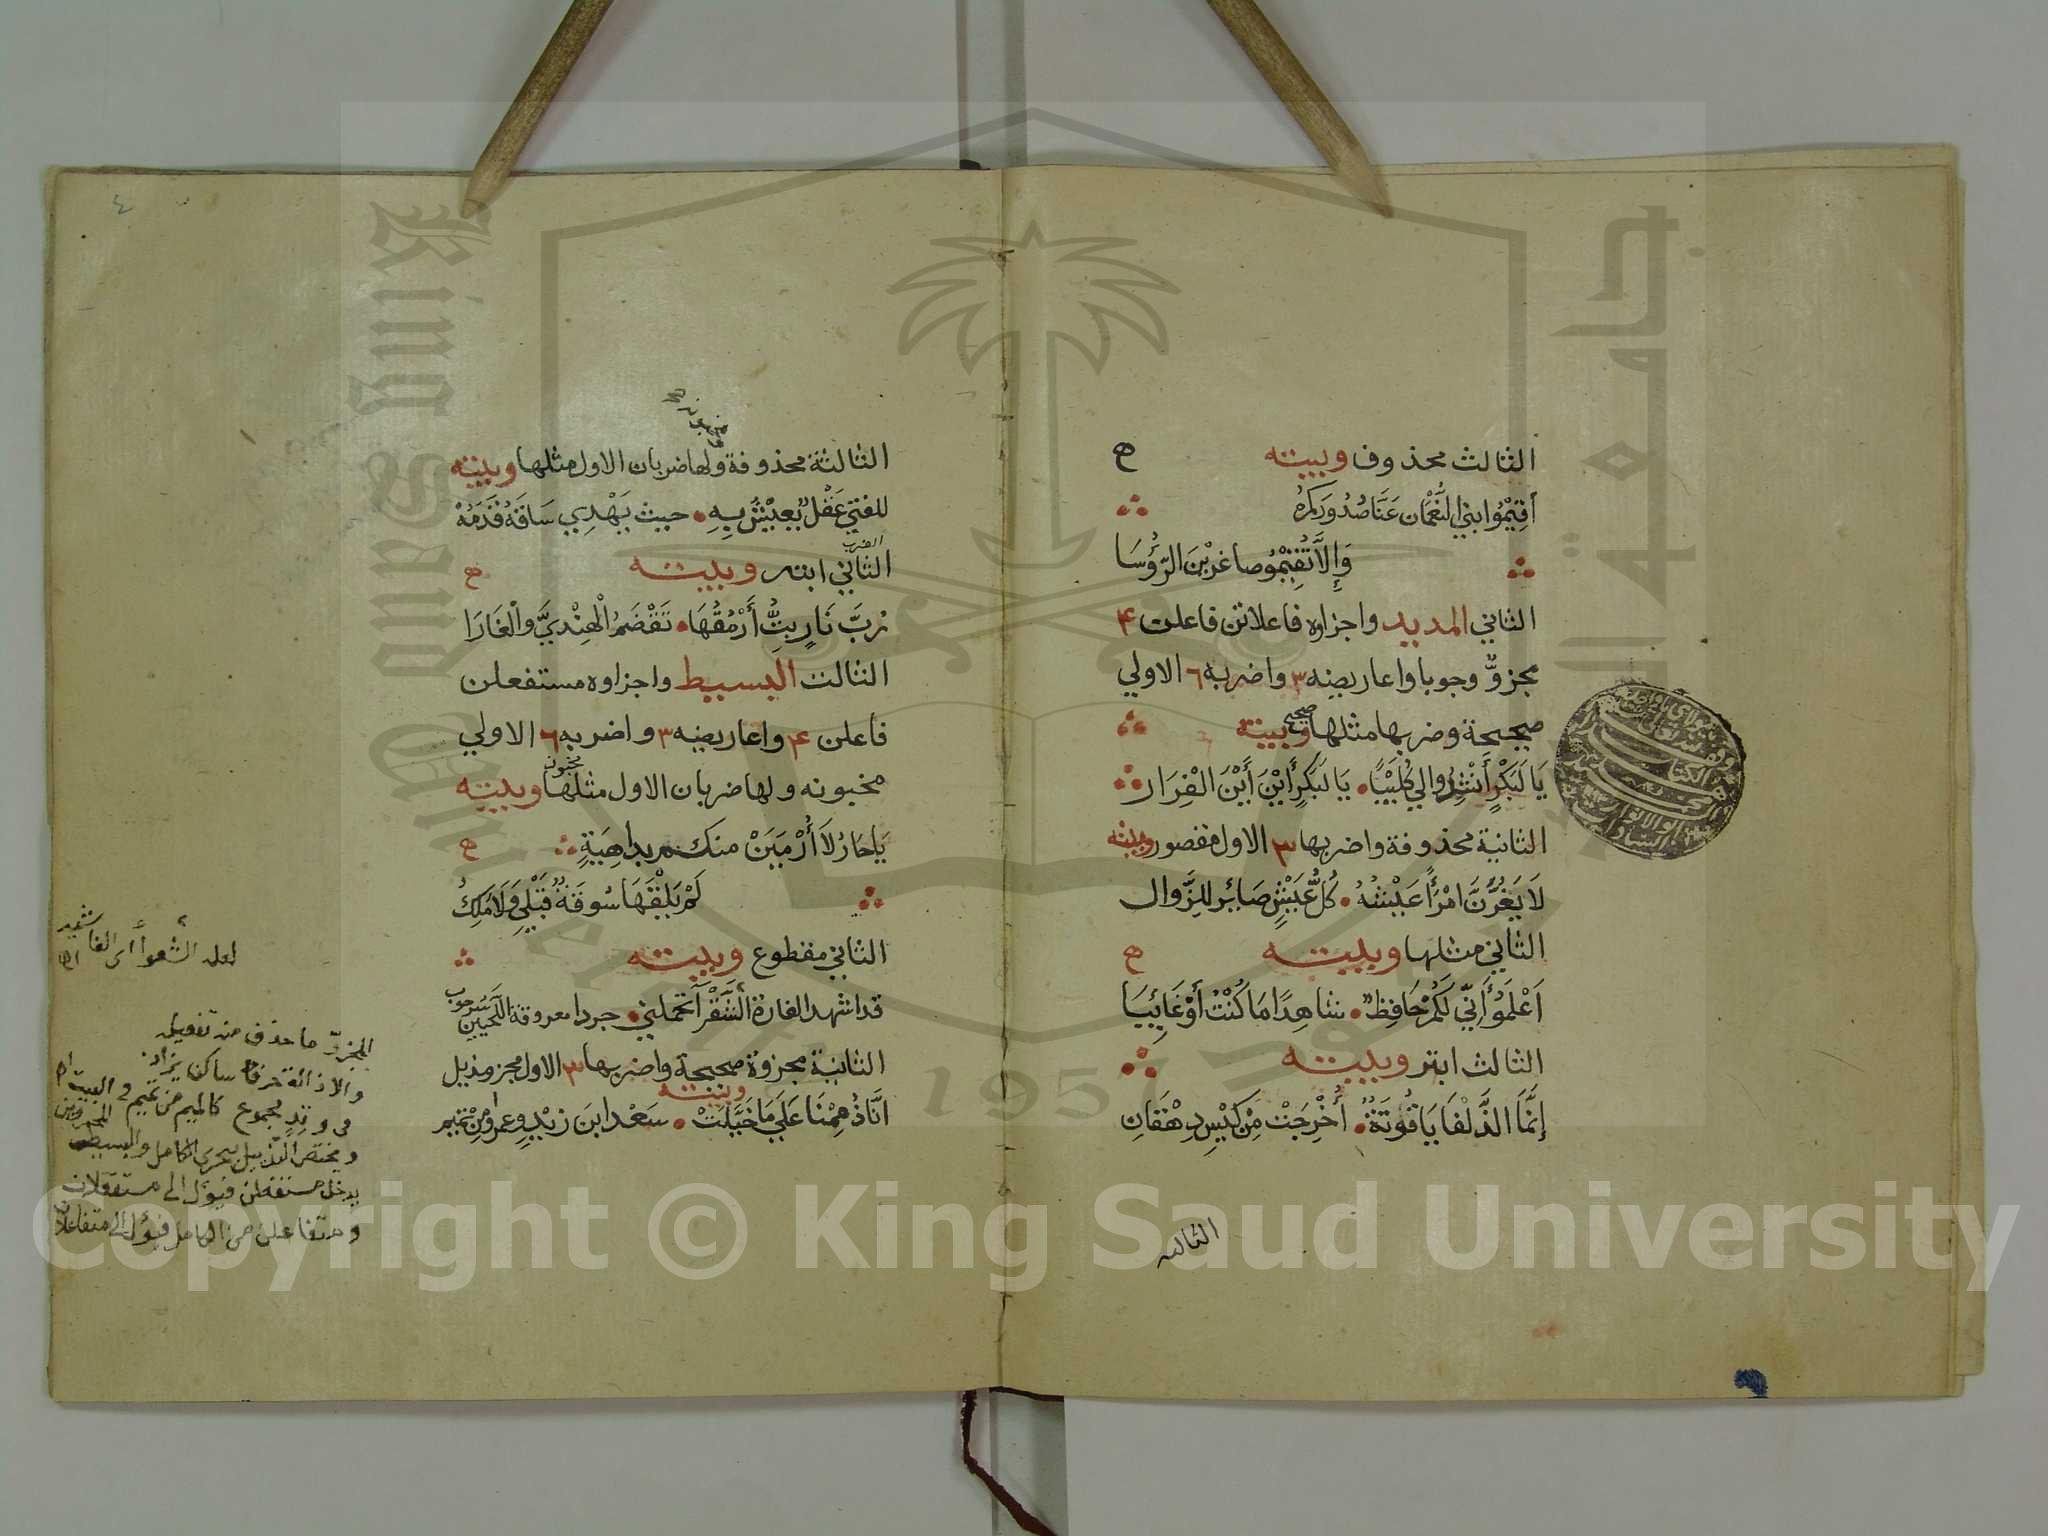 الثالث محذوف وبيته ه
أَقِيْمُوا بني النُّعْمَان عَنَّا صُدُورَكُمُ
وَإِلَّا تُقِيْمُوا صاغرِيْنَ الرُّؤُسَا
الثاني المديد واجزاوه فاعلاتن فاعلن ۴
مجزوٌّ وجوبا واعاريضه ٣ واضربه ٦ الاولي
صحيحة وضربها مثلها صحيح وبيته
يَا لَبَكْرٍ أَنْشِرُوا لي كُلَيْبًا • يَا لَبَكرٍ أَيْنَ أَيْنَ الْفِرَار
الثانية محذوفة واضربها ٣ الاول مقصور وبيته
لَا يَغُرَّنَّ امْرَأً عَيْشُهُ • كُلُّ عَيْشٍ صَائِر للزَّوال
الثاني مثلها وبيته ه
اَعْلَمُوْ أَنِّي لَكُمْ حَافِظٌ • شاهِدًا مَا كُنْتُ أَوْ غَائِبَا
الثالث ابتر وبيته
إنَّمَا الذَّلْفَا يَاقُوتَةٌ • أُخْرِجَتْ مِنْ كِيْسِ دِهْقَانِ
الثالثه
٤
الثالثة محذوفة ولها ضربان الاول مثلها وبيته
للفتي عَقْلٌ يَعِيْشُ بِهِ • حيث يَهْدِي سَاقَهُ قَدَمُهْ
الضرب
الثاني ابتر وبيته ه
رُبَّ نَارٍ بِتُّ أَرْمُقُهَا • تَقْضَمُ الْهِنْدِيَّ والْغَارَا
الثالث البسيط واجزاوه مستفعلن
فاعلن ۴ واعاريضه ٣ واضربه ٦ الاولي
مخبونه ولها ضربان الاول مثلها مخبون وبيته
يَا حَارُ لَا أُرْمَيَنْ منكم بداهِيَةٍ ه
لَمْ يَلْقَهَا سُوقَةٌ قَبْلِي وَلَا مَلِكُ
الثاني مقطوع وبيته
قد اشهد الغارة الشَّعْوَآ تحملني • جردا معروقة اللَّحيين سُرحوب
الثانية مجزوة صحيحة واضربها ٣ الاول مجزو مذيل
وبيته
انَّا ذَمِمْنَا عَلَي مَا خَيَّلَتْ • سَعْد ابنَ زيْدٍ وعمرا مِنْ تميم
لعله الشعوا أى الفاشية اه
المجزوّ ما حذف منه تفعيله
والاذالة حرف ساكن يزاد
فى وتد مجموع كالميم من تميم فى البيت اه
ويختص التذييل ببحرى الكامل والبسيط
يدخل مستفعلن فيؤل الى مستفعلان
ومتفاعلن من الكامل فيؤل الى متفاعلان
جامعة الملك سعود
King Saud University
1957
Copyright © King Saud University